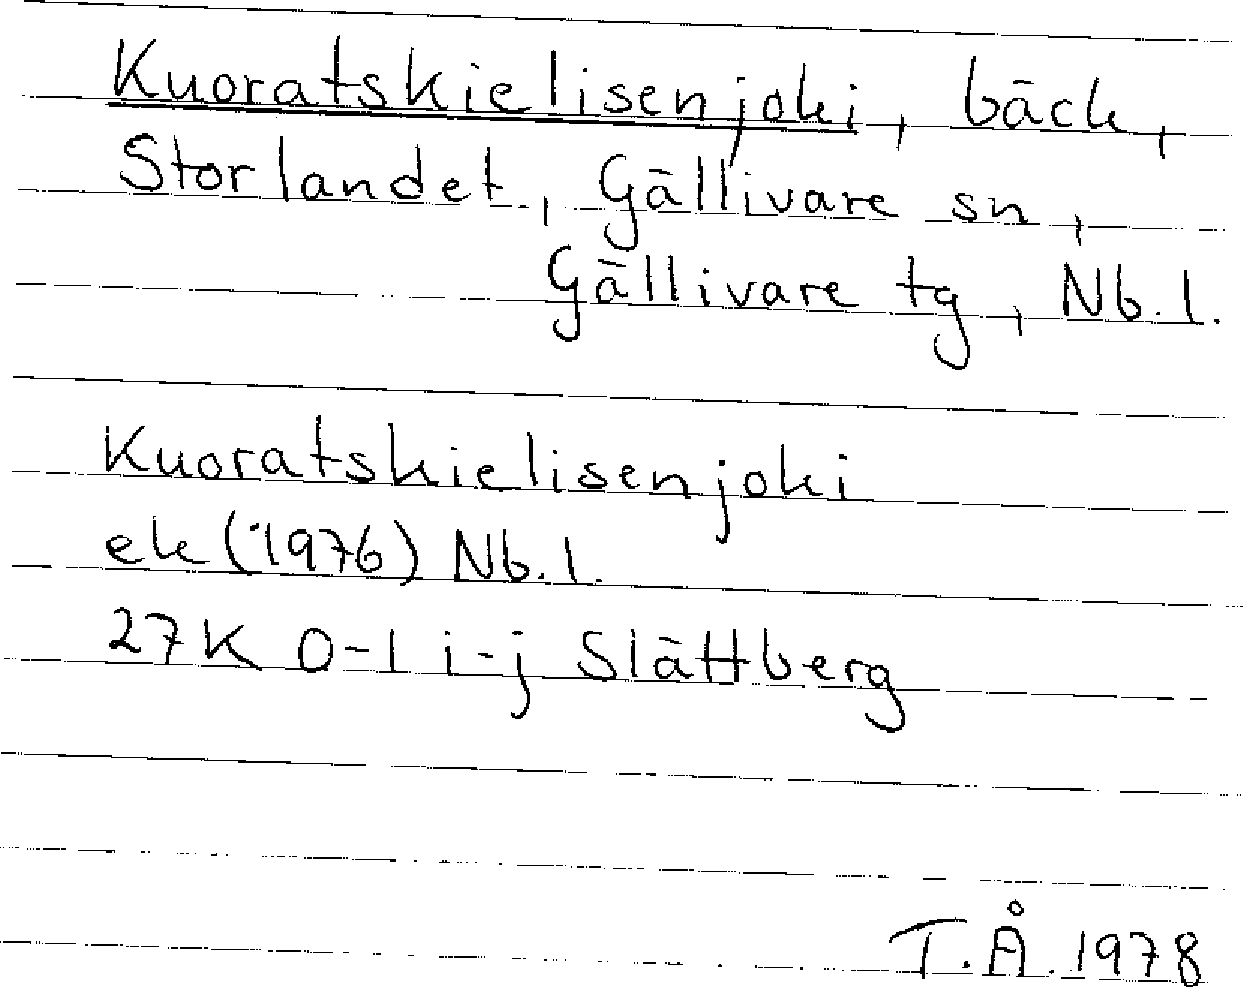 Kuoratskielisenjoki, bäck,
Storlandet, Gällivare sn,
Gällivare tg, Nb. l.
Kuoratskielisenjoki
ek (1976) Nb. l.
27K 0-1 i-j Slättberg
T.Å. 1978